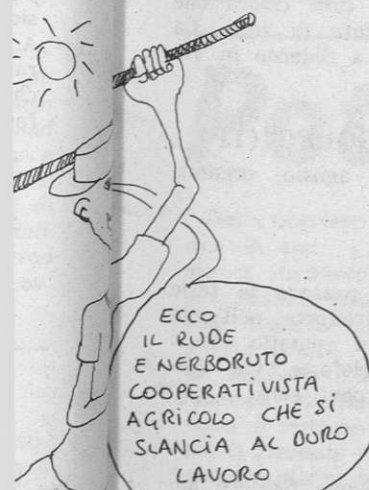 ECCO
IL RUDE
E NERBORUTO
COOPERATIVISTA
AGRICOLO CHE SI
SLANCIA AL DURO
LAVORO